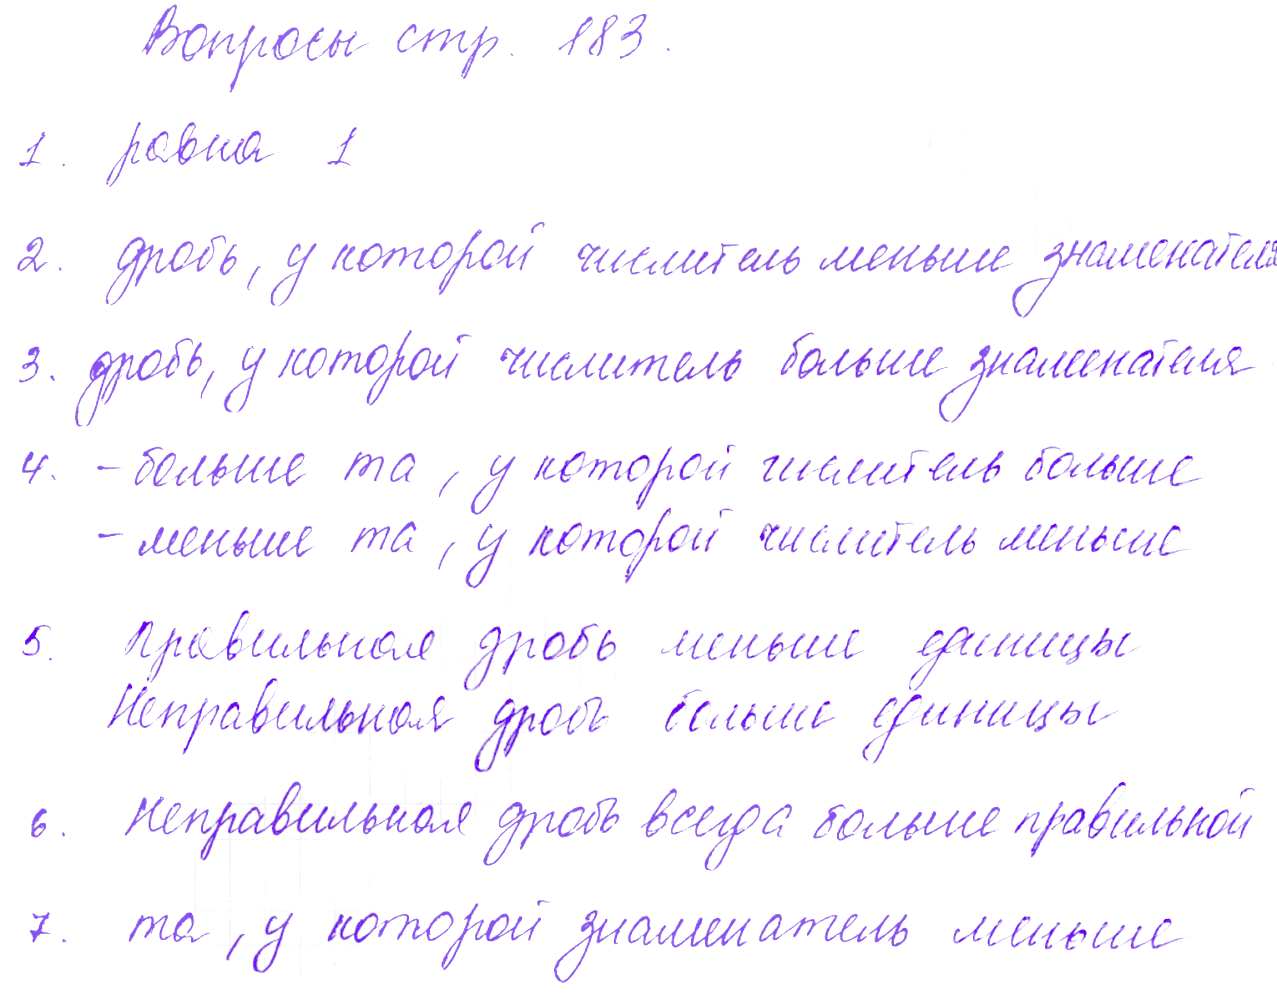 Вопросы стр. 183.
1. равна 1
2. дробь, у которой числитель меньше знаменателя
3. дробь, у которой числитель больше знаменателя
4. - больше та, у которой числитель больше
- меньше та, у которой числитель меньше
5. Правильная дробь меньше единицы
Неправильная дробь больше единицы
6. Неправильная дробь всегда больше правильной
7. та, у которой знаменатель меньше